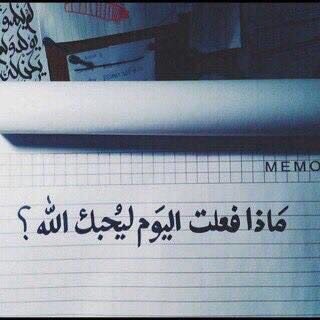 MEMO
مَاذا فعلت اليَوم ليُحبك الله ؟